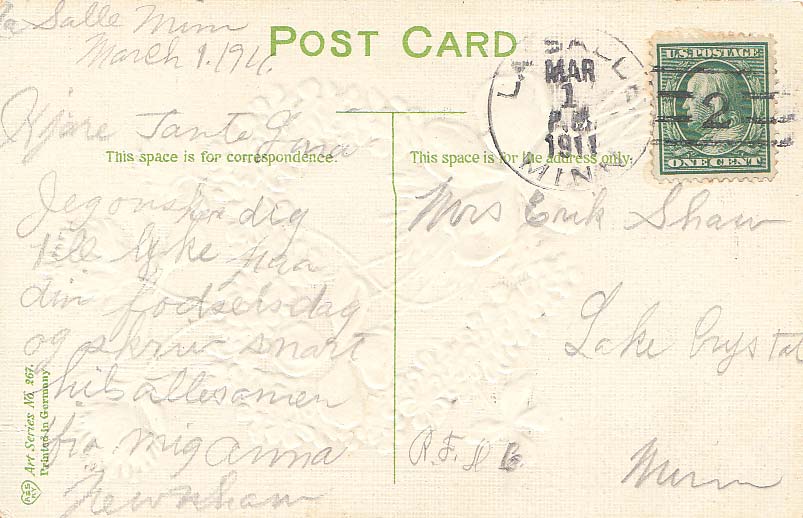 La Salle Minn
March 1. 1911.
POST CARD
LA SALLE
MAR
1
P.M.
1911
MINN
U.S. POSTAGE
2
ONE CENT
Kjære Tante Gina
This space is for correspondence.
This space is for the address only.
Jeg onsker dig
till lyke paa
din fodselsdag
og skriv snart
hils allesamen
fra mig anna
Mrs Erik Shaw
Lake Crystal
R.F.D
Minn
Art Series No. 267.
Printed in Germany